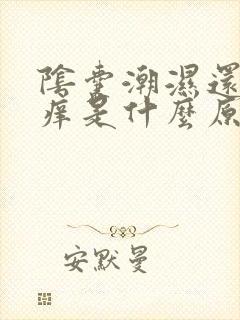 陰囊潮濕還
癢是什麼原
安默曼